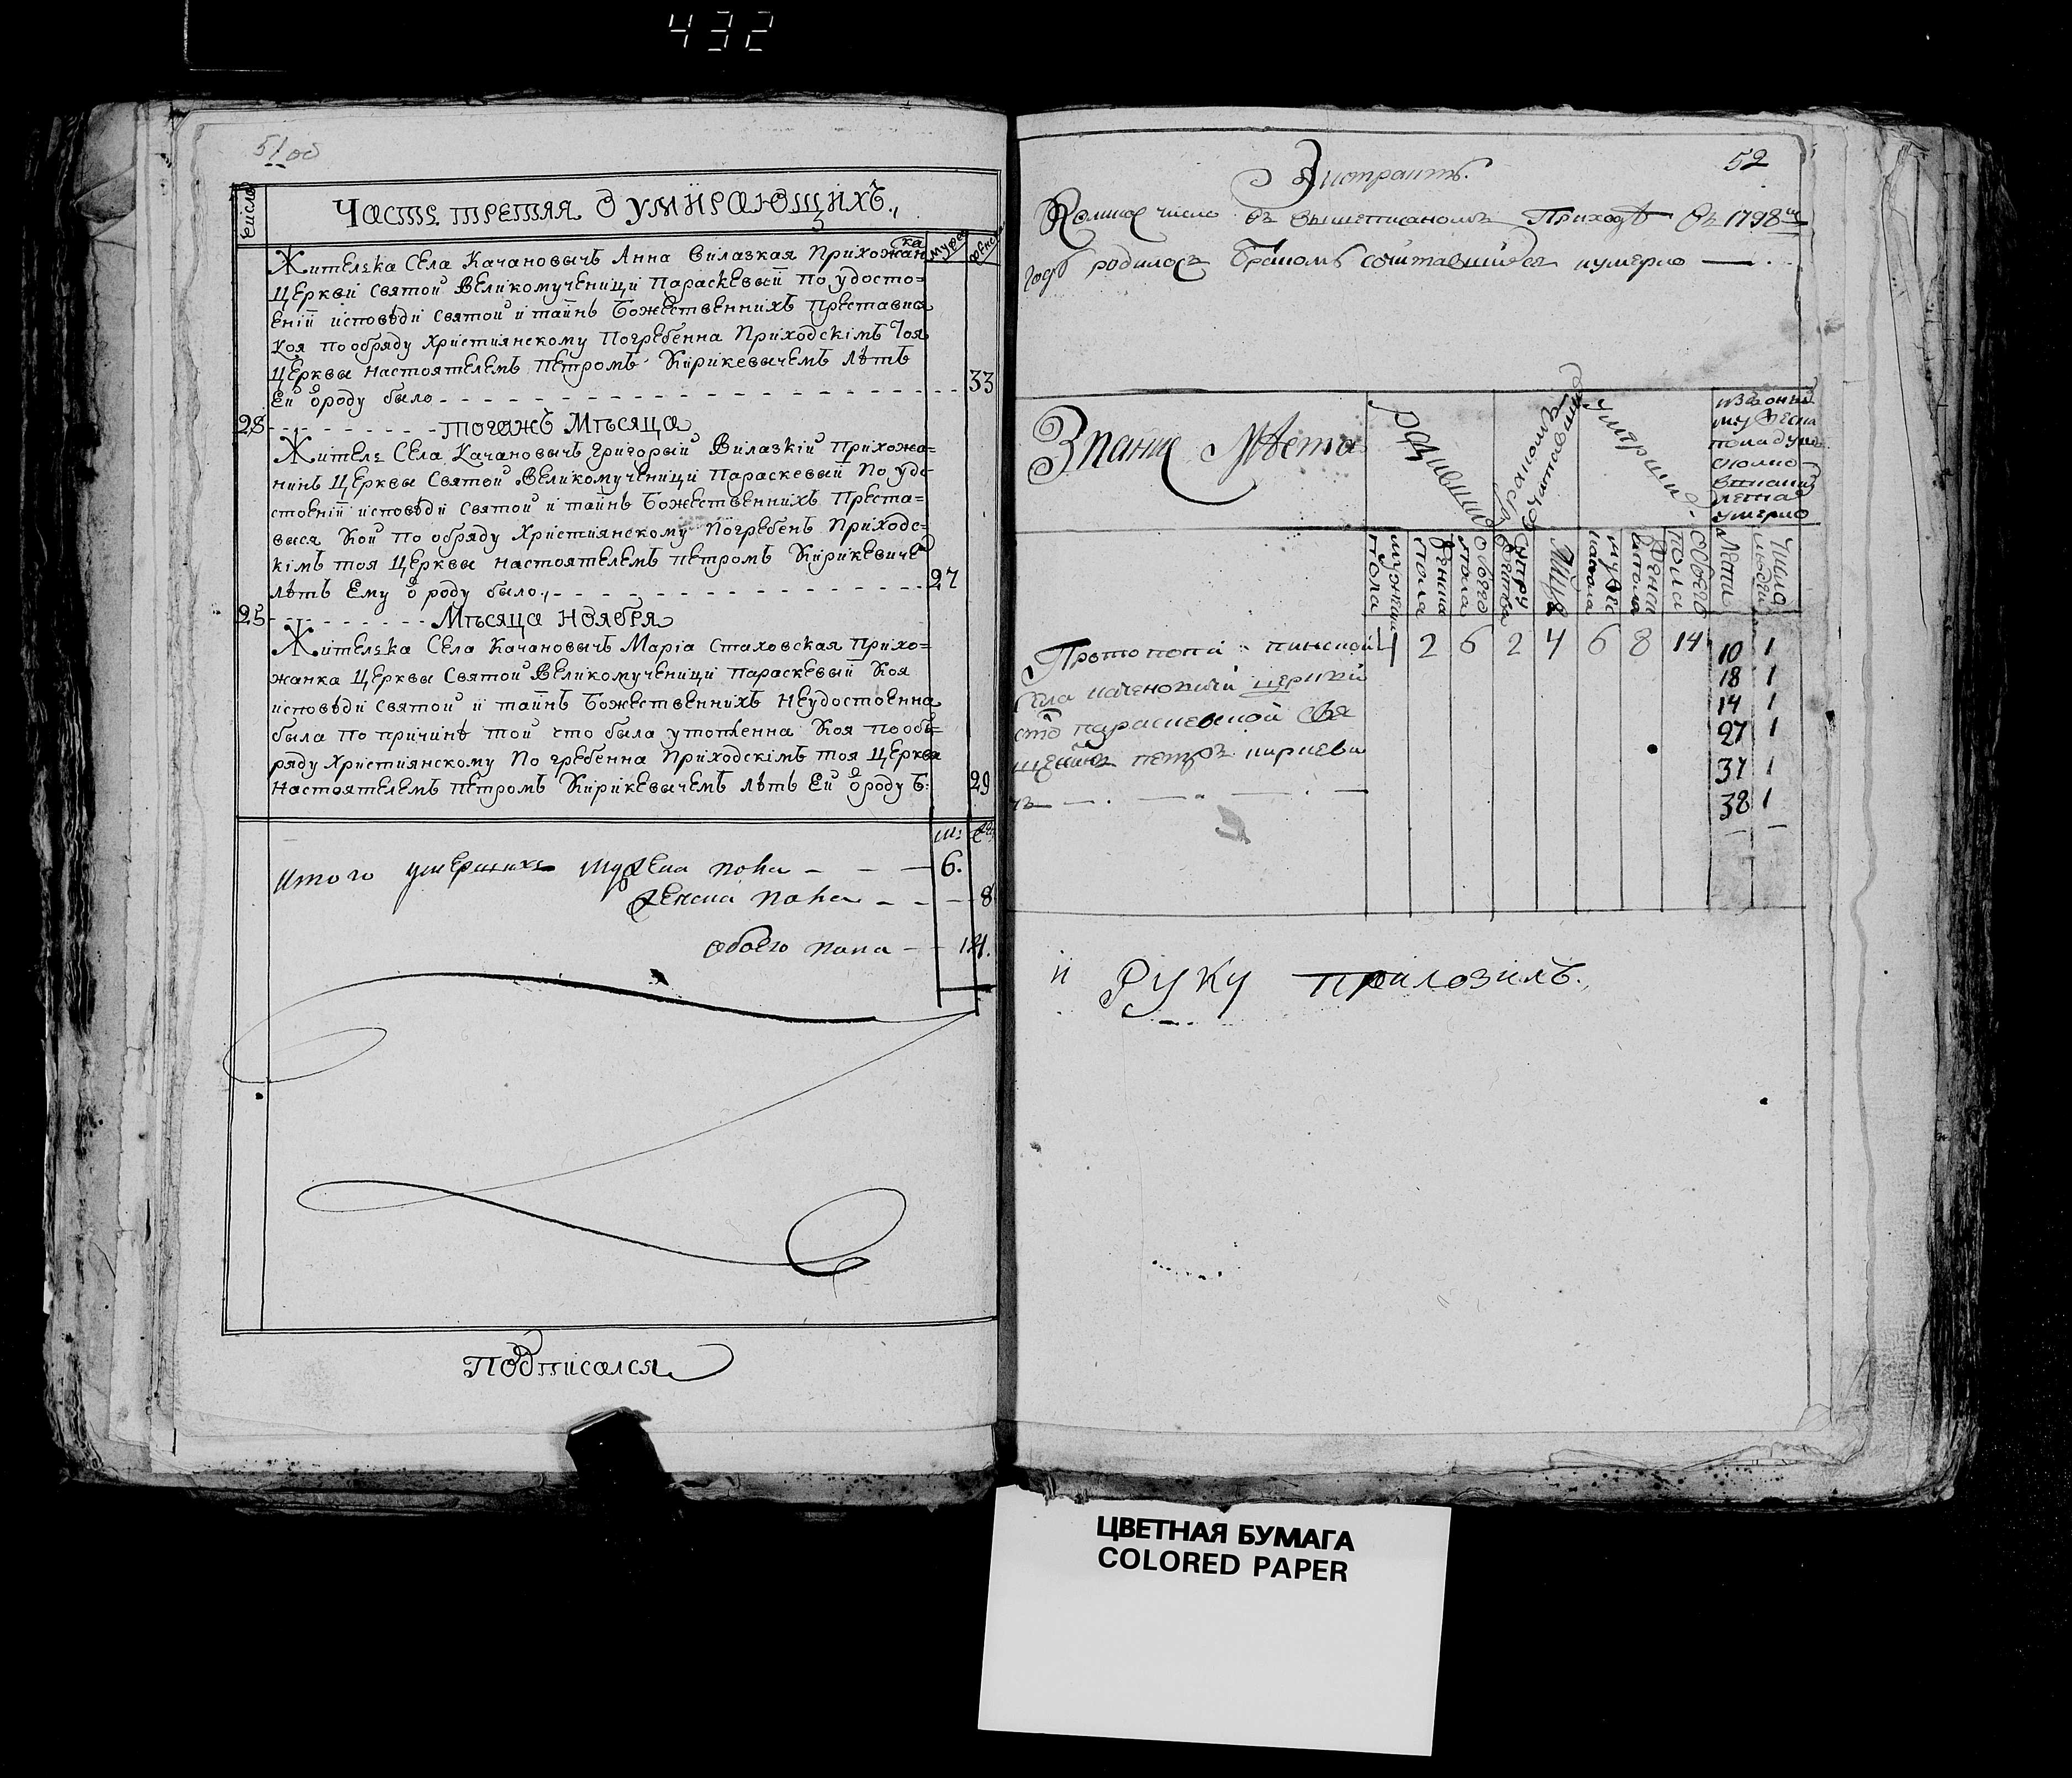 432
51 об
Числа
Часть третяя о умирающихъ.,
муже
женска
ка
Жителька Села Качановычъ Анна Вилазкая Прихожан
Церкви Святой Великомученици Параскевыи По удосто=
еніи исповѣди святой и тайнъ Божественнихъ Преставис
Коя по обряду Християнскому Погребенна Приходскімъ Тоя
Церквы настоятелемъ Петромъ Кирикевычемъ лѣтъ
Ей ѿроду было 33
28 тогожъ Мѣсяца
Житель Села Качановычъ Григорый Вилазкій Прихожа=
нинъ Церквы Святой Великомученици Параскевый По удо
стоеній исповѣди святой и тайнъ Божественнихъ Преста=
выся Кой по обряду Християнскому Погребенъ Приходс=
кімъ тоя Церквы настоятелемъ Петромъ Кирикевиче
лѣтъ Ему ѿ роду было., 27
25 Мѣсяца Ноября
Жителька Села Качановычъ Марія Стаховская Прихо=
жанка Церквы Святой Великомученици Параскевый Коя
исповѣди святой и тайнъ Божественнихъ Неудостоенна
была по причинѣ той что была утопленна Коя пооб=
ряду Християнскому По гребенна Приходскімъ тоя Церкви
Настоятелемъ Петромъ Кирикевычемъ лѣтъ Ей ѿроду б: 29
м: ж:
Итого умершихъ мужеска пола 6.
женска пола 8
обоего пола 14.
Подписался
52
Экстрактъ.
Коликое число въ вышеписаномъ Приходѣ въ 1798мъ
годѣ родилось бракомъ сочитавшихся и умерло
Звание Мѣста
Родившихся
бракомъ сочитавшихся
умерших
мужеска пола
женска пола
обоего пола
супружества
Лица
мужеска пола
женска пола
обоего пола
Лета
Число людей
Протопопіи пинской 4 2 6 2 4 6 8 14 10 1
18 1
14 1
27 1
37 1
38 1
села каченовичъ церкви
сто параскевской свя
щенникъ петръ киркеви
чъ
и руку приложилъ.
ЦВЕТНАЯ БУМАГА
COLORED PAPER